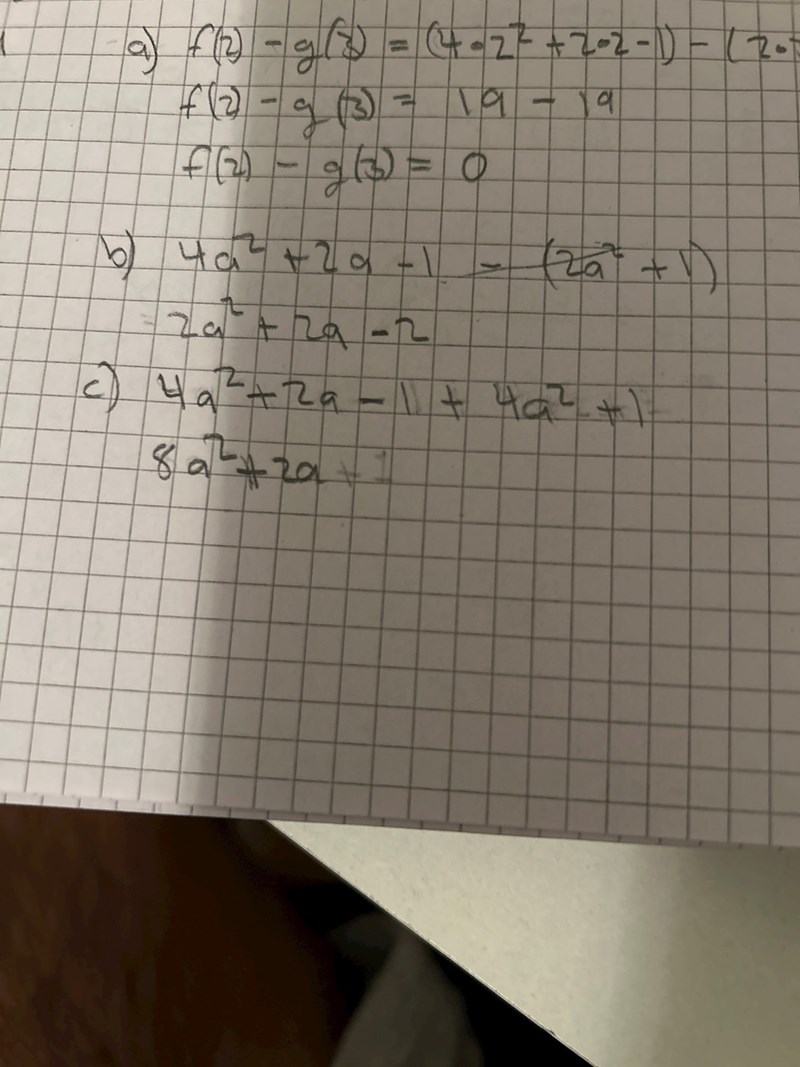 a) f(2) - g(3) = (4•2² + 2•2-1) - (2•
f(2) - g(3) = 19 - 19
f(2) - g(3) = 0
b) 4a² + 2a - 1 - (2a² + 1)
2a² + 2a - 2
c) 4a² + 2a - 1 + 4a² + 1
8a² + 2a